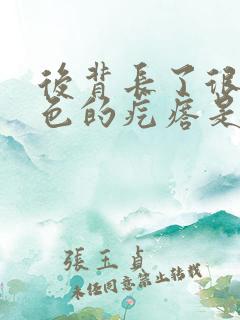 後背長了很
色的疙瘩是
張玉貞
未经同意禁止转载